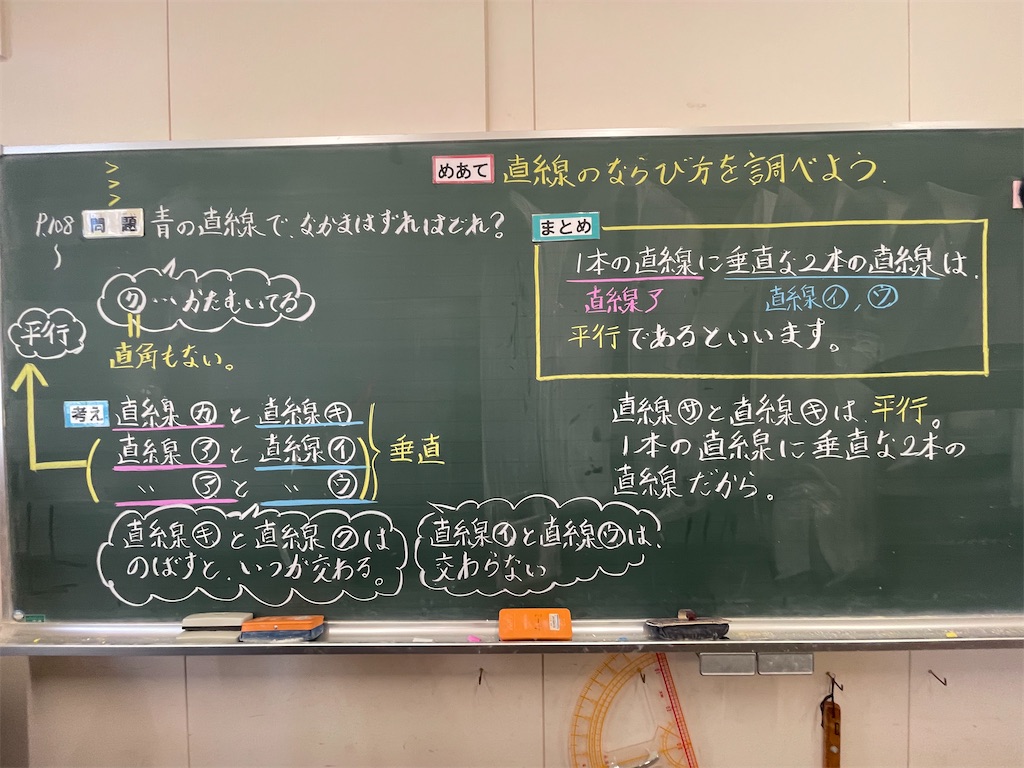 めあて 直線のならび方を調べよう.
P.108 問題 青の直線で、なかまはずれはどれ?
㋗…かたむいてる
直角もない。
平行
考え 直線㋕と直線㋖
直線㋐と直線㋑
〃 ㋐と 〃 ㋒
垂直
直線㋖と直線㋗は
のばすと、いつか交わる。
直線㋑と直線㋒は、
交わらない
まとめ
1本の直線に垂直な2本の直線は、
直線ア 直線㋑,㋒
平行であるといいます。
直線㋚と直線㋖は平行。
1本の直線に垂直な2本の
直線だから。